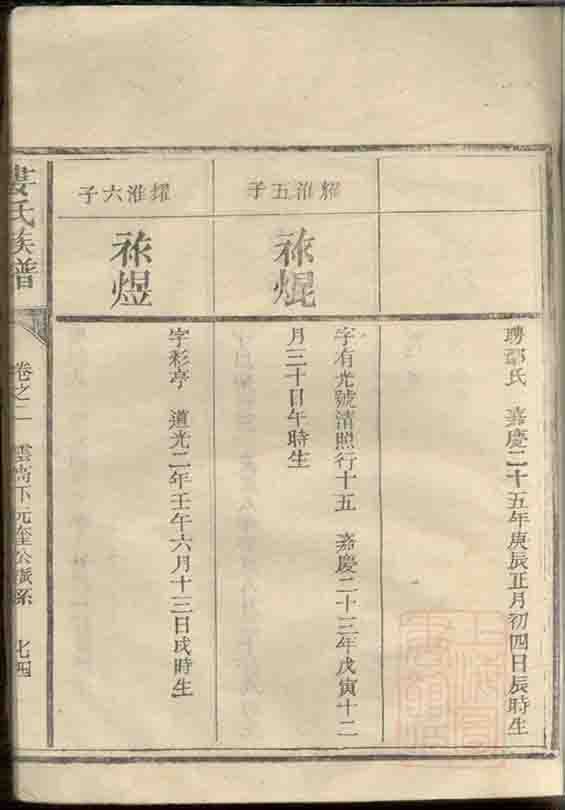 聘鄧氏 嘉慶二十五年庚辰正月初四日辰時生
耀淮五子
祢焜
字有光號清照行十五 嘉慶二十三年戊寅十二
月三十日午時生
耀淮六子
祢煜
字彩亭 道光二年壬午六月十三日戌時生
婁氏族譜
卷之二 雲高下元奎公派系 七四